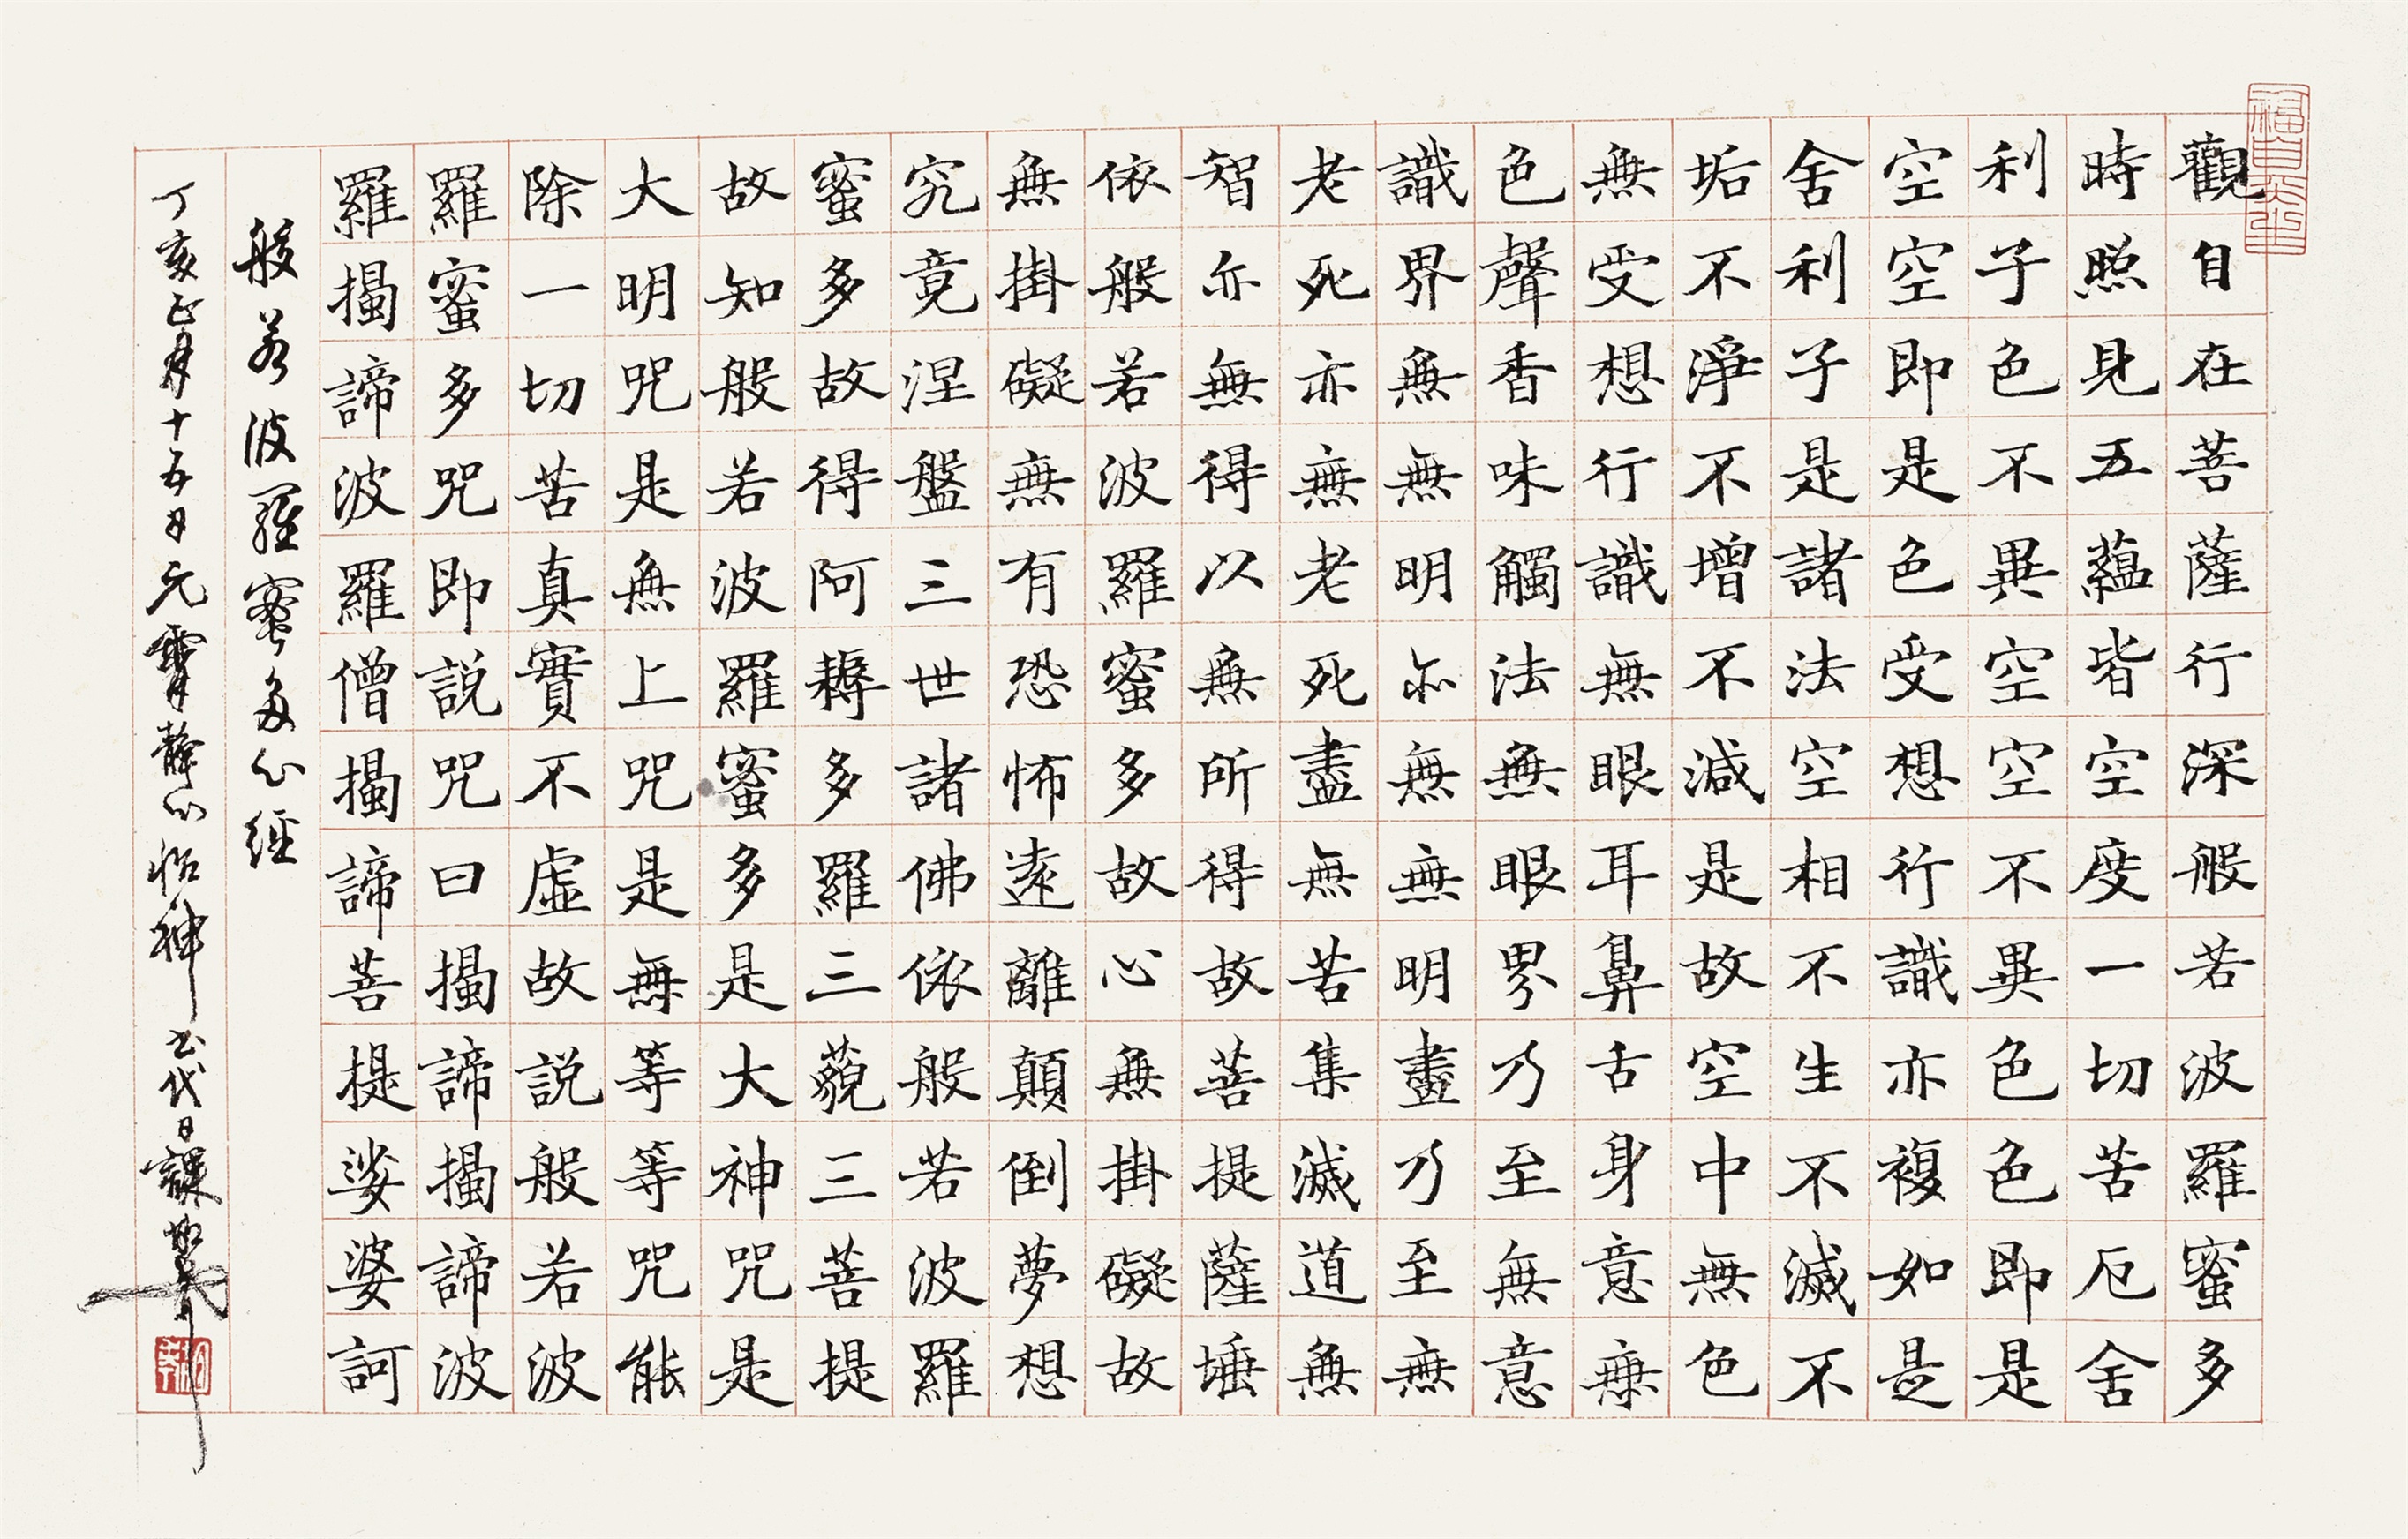 觀自在菩薩行深般若波羅蜜多
時照見五蘊皆空度一切苦厄舍
利子色不異空空不異色色即是
空空即是色受想行識亦複如是
舍利子是諸法空相不生不滅不
垢不淨不增不減是故空中無色
無受想行識無眼耳鼻舌身意無
色聲香味觸法無眼界乃至無意
識界無無明亦無無明盡乃至無
老死亦無老死盡無苦集滅道無
智亦無得以無所得故菩提薩埵
依般若波羅蜜多故心無掛礙故
無掛礙無有恐怖遠離顛倒夢想
究竟涅盤三世諸佛依般若波羅
蜜多故得阿耨多羅三藐三菩提
故知般若波羅蜜多是大神咒是
大明咒是無上咒是無等等咒能
除一切苦真實不虛故說般若波
羅蜜多咒即說咒曰揭諦揭諦波
羅揭諦波羅僧揭諦菩提娑婆訶
般若波羅蜜多心經
丁亥正月十五日元宵靜心怡神 代日課